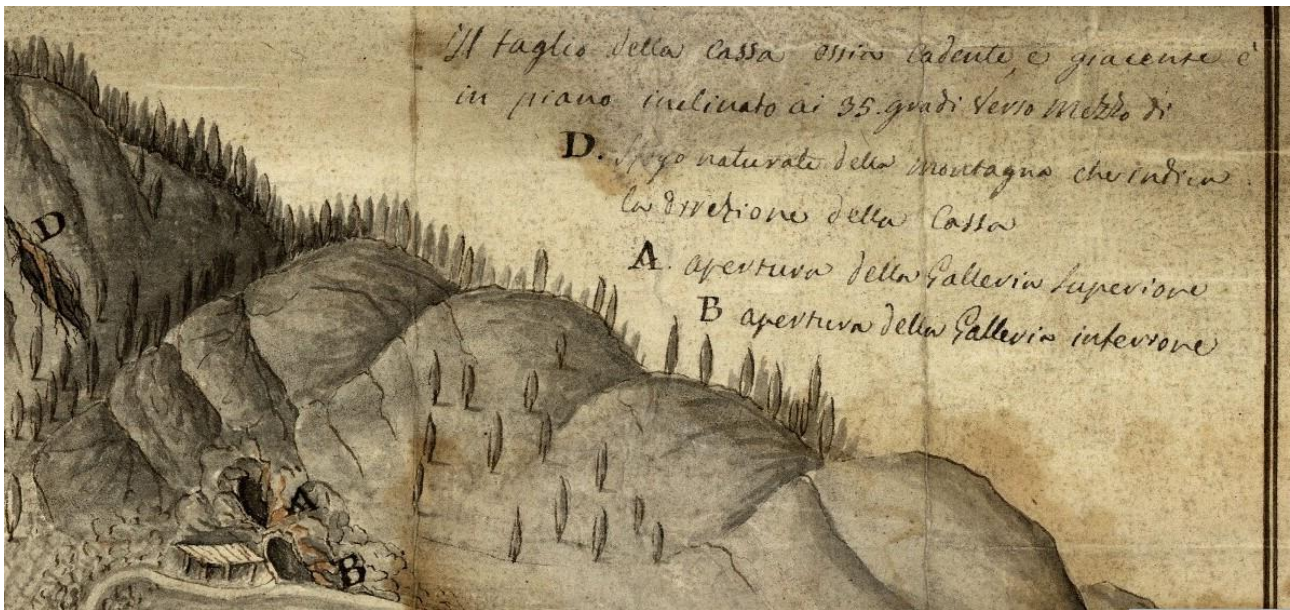 Il taglio della cassa ossia cadente, e giacente è
in piano inclinato ai 35. gradi verso mezzo di
D. naturale della montagna che indica
la direzione della Cassa
A. apertura della Galleria Superiore
B apertura della Galleria inferiore
D
A
B